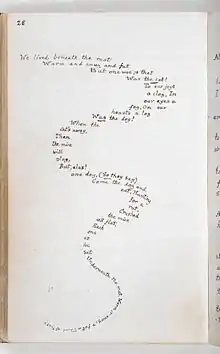 28
We lived beneath the mat
Warm and snug and fat
But one woe, & that
Was the cat!
To our joys
a clog, In
our eyes a
fog, On our
hearts a log
Was the dog!
When the
cat's away,
Then
the mice
will
play,
But, alas!
one day, (So they say)
Came the dog and
cat, Hunting
for a
rat,
Crushed
the mice
all flat,
Each
one
as
he
sat
Underneath the mat, Warm, & snug, & fat